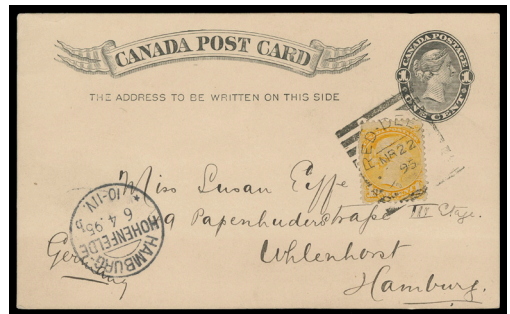 CANADA POST CARD
CANADA POSTAGE
1 1
ONE CENT
THE ADDRESS TO BE WRITTEN ON THIS SIDE
RED DEE
MR 22
95
Miss Susan Eyffe
49 Papenhuderstrasse III Etage.
Uhlenhorst
Hamburg.
Germany
HAMBURG-
HOHENFELDE
6.4.95
10-11V.